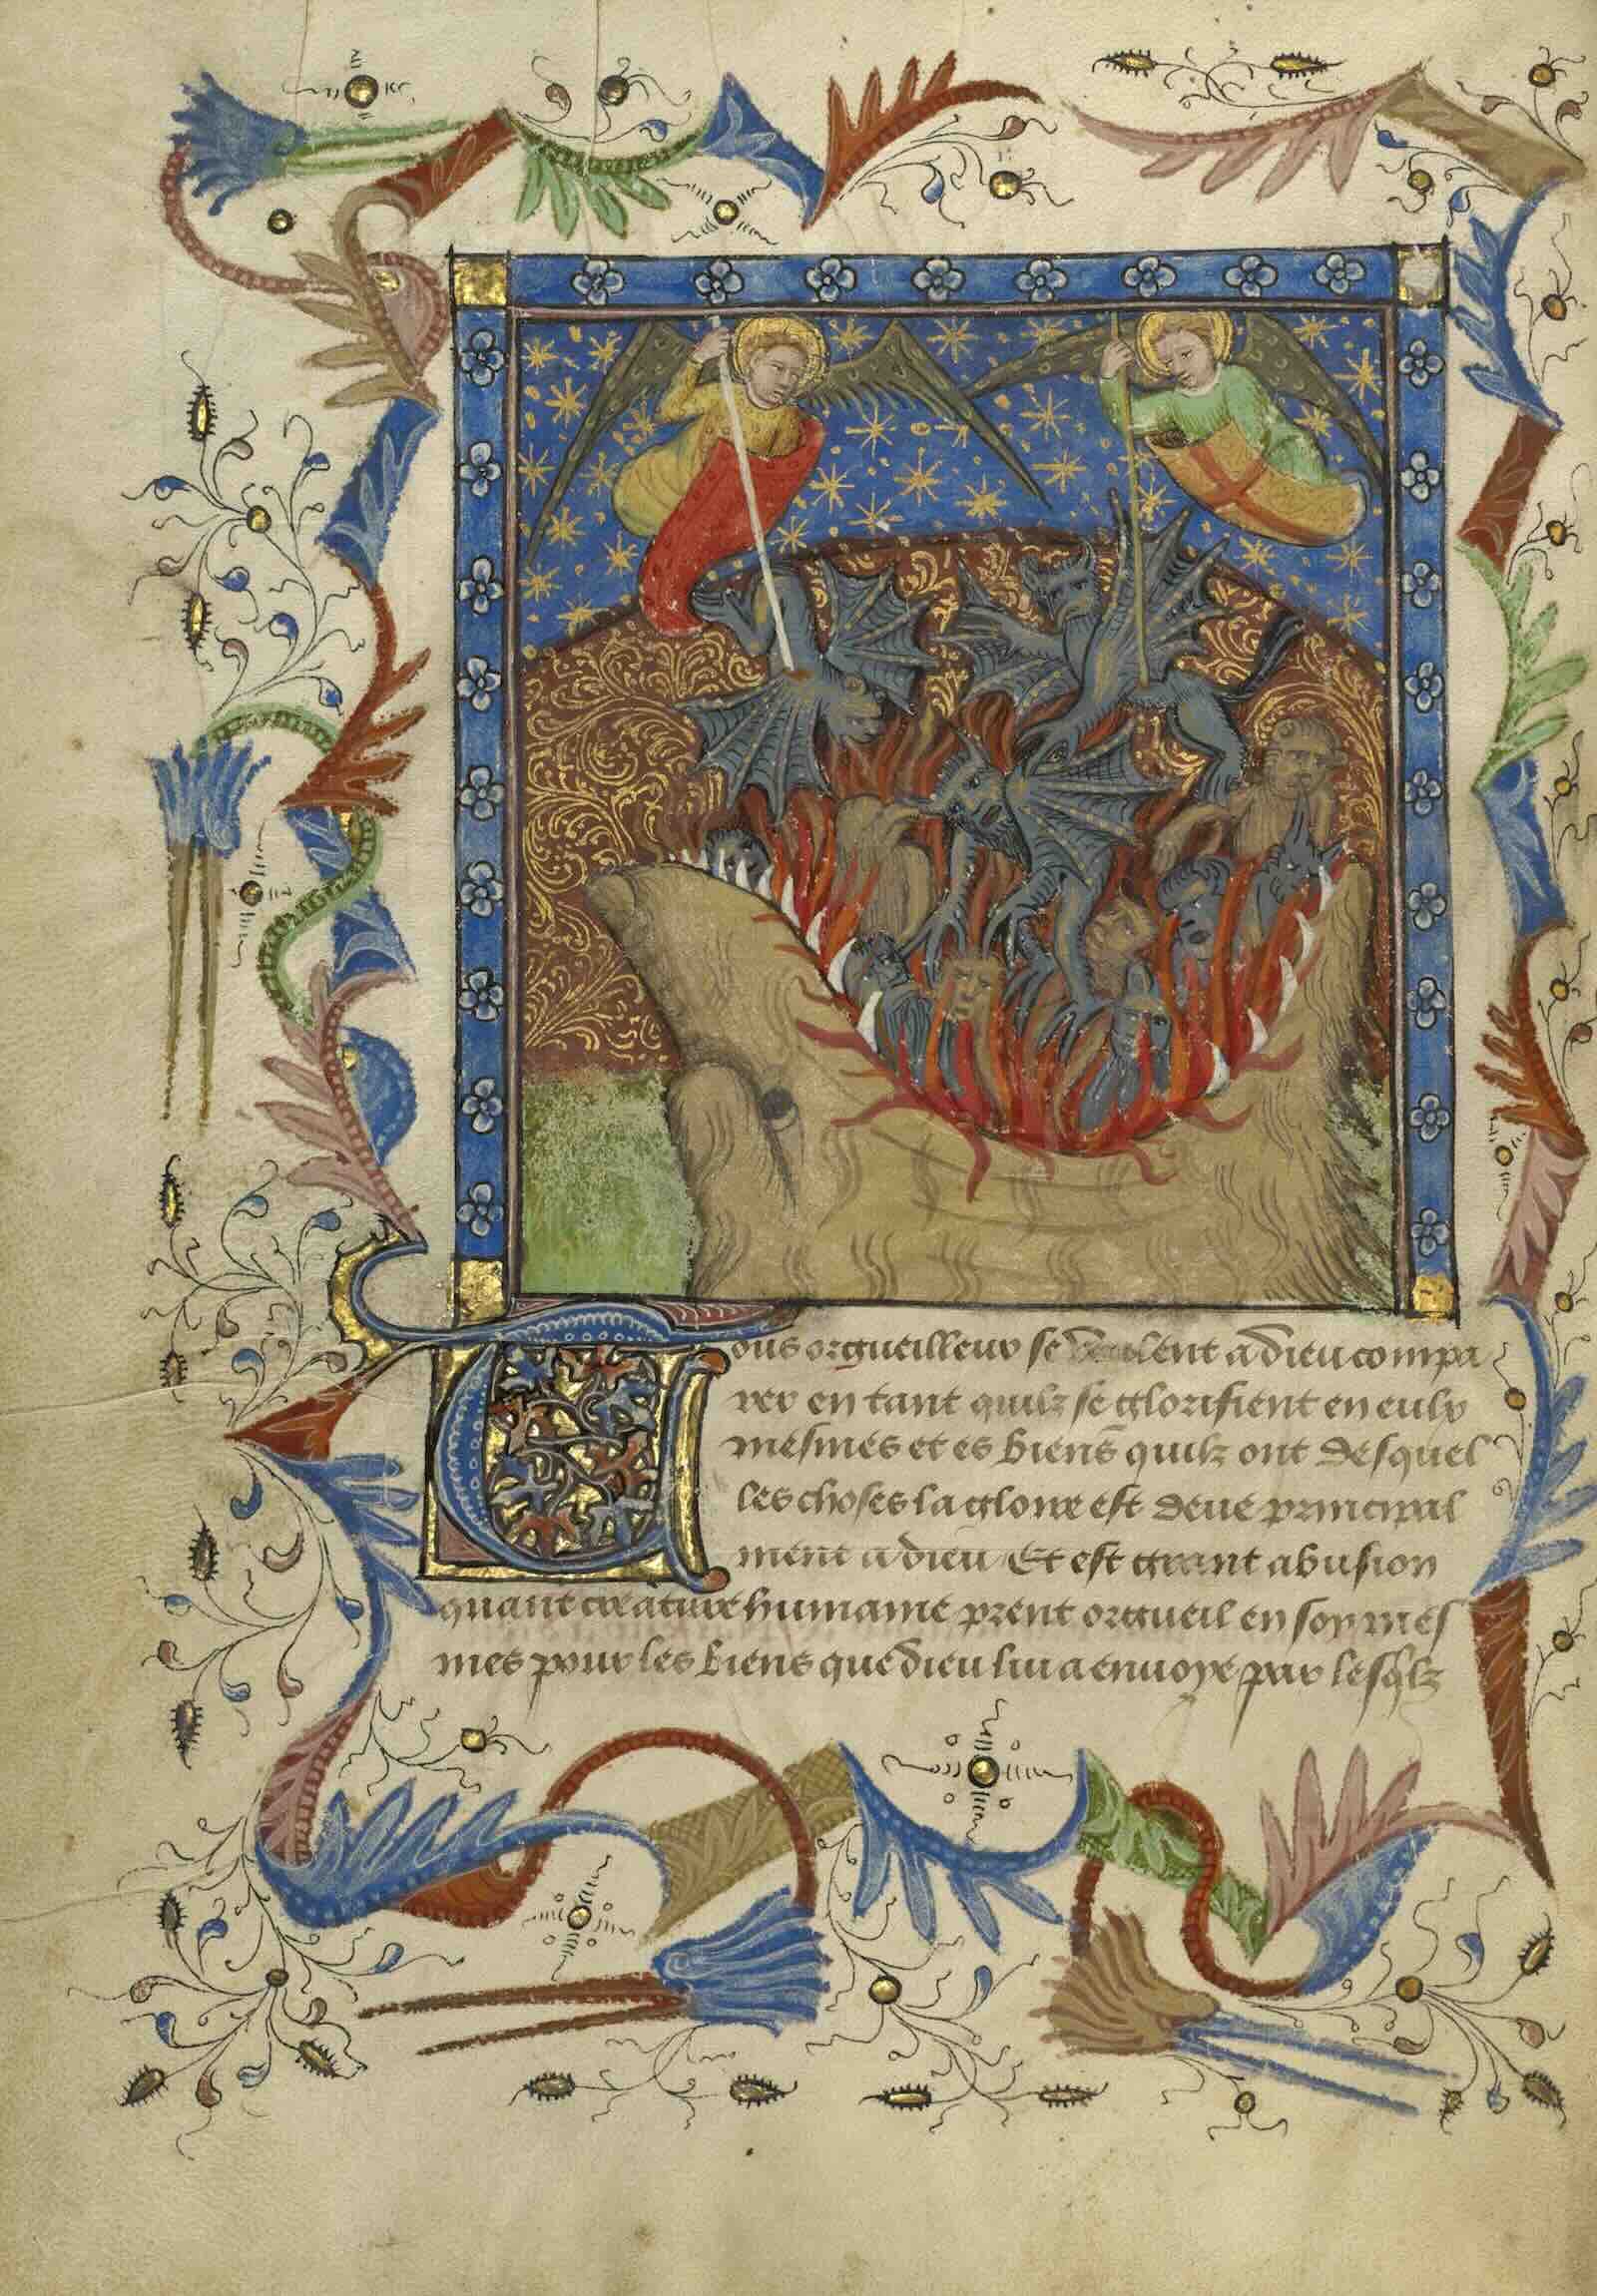 Tous orgueilleux se veulent a dieu compa
rer en tant quilz se glorifient en eulx
mesmes et es biens quilz ont desquel
les choses la gloire est deue principal
ment a dieu Et est grant abusion
quant creature humaine prent orgueil en soy mes
mes pour les biens que dieu lui a enuoye par lesqlz